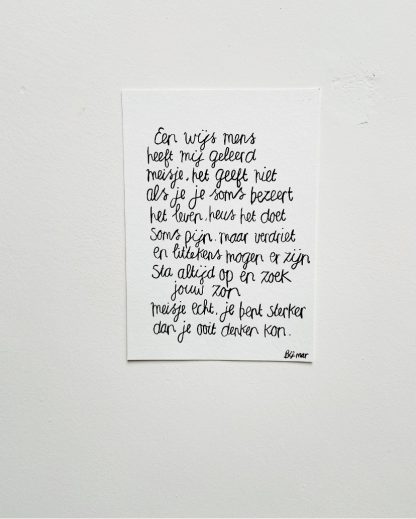 Een wijs mens
heeft mij geleerd
meisje, het geeft niet
als je je soms bezeert
het leven, heus het doet
soms pijn. maar verdriet
en littekens mogen er zijn
sta altijd op en zoek
jouw zon
meisje echt, je bent sterker
dan je ooit denken kon.
Bij mar